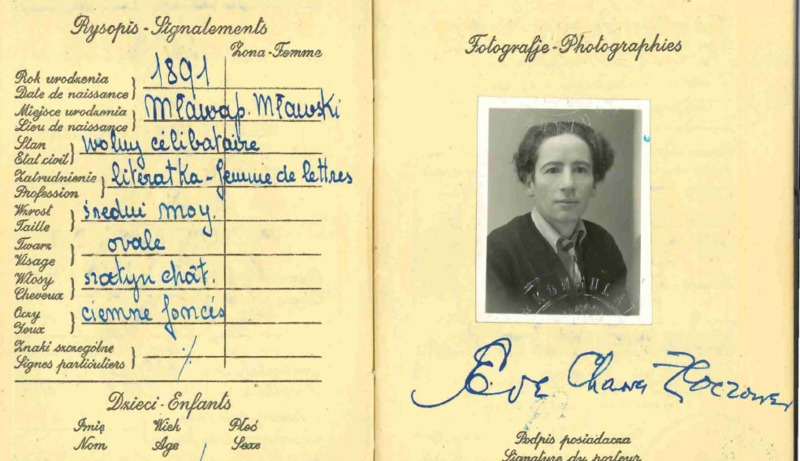 Rysopis - Signalements
Żona - Femme
Rok urodzenia
Date de naissance
1891
Miejsce urodzenia
Lieu de naissance
Mława p. Mławski
Stan
Etat civil
wolny célibataire
Zatrudnienie
Profession
literatka - femme de lettres
Wzrost
Taille
średni moy.
Twarz
Visage
ovale
Włosy
Cheveux
szatyn chât.
Oczy
Yeux
ciemne foncés
Znaki szczególne
Signes particuliers
Dzieci - Enfants
Imię Wiek Płeć
Nom Age Sexe
Fotografje - Photographies
KONSULAT
Eve Chawa Zloczower
Podpis posiadacza
Signature du porteur